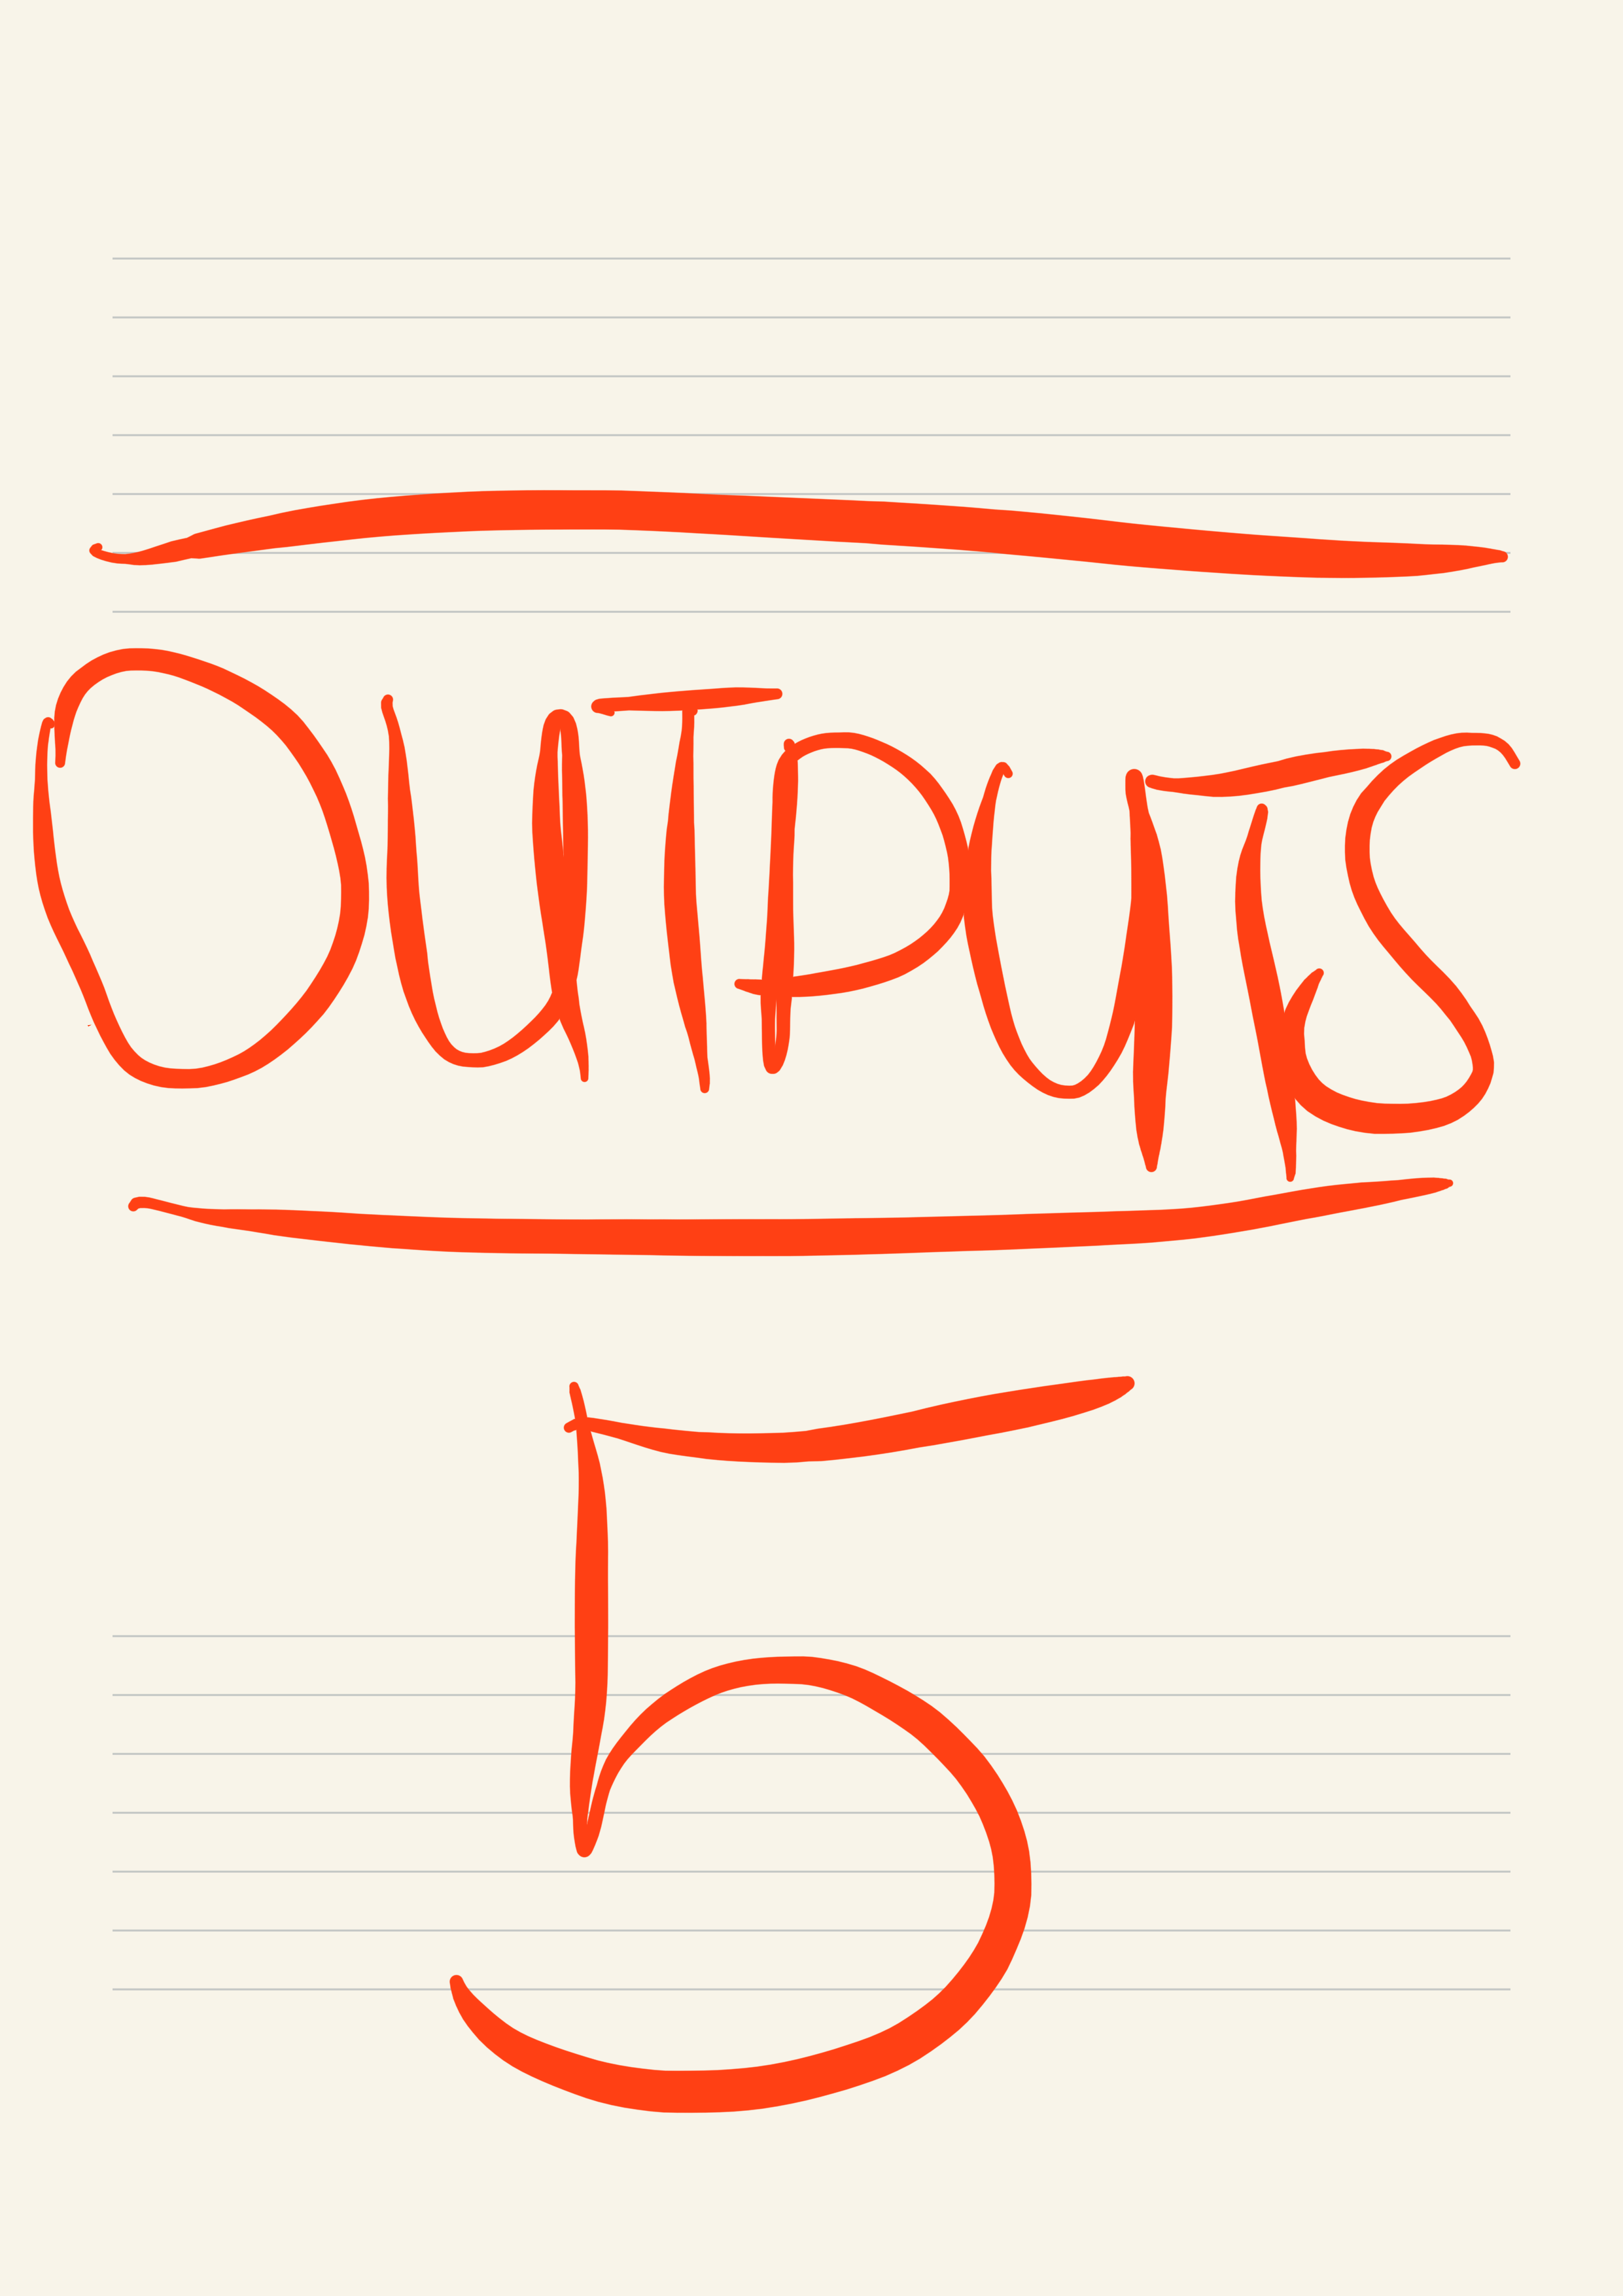 OUTPUTS
5